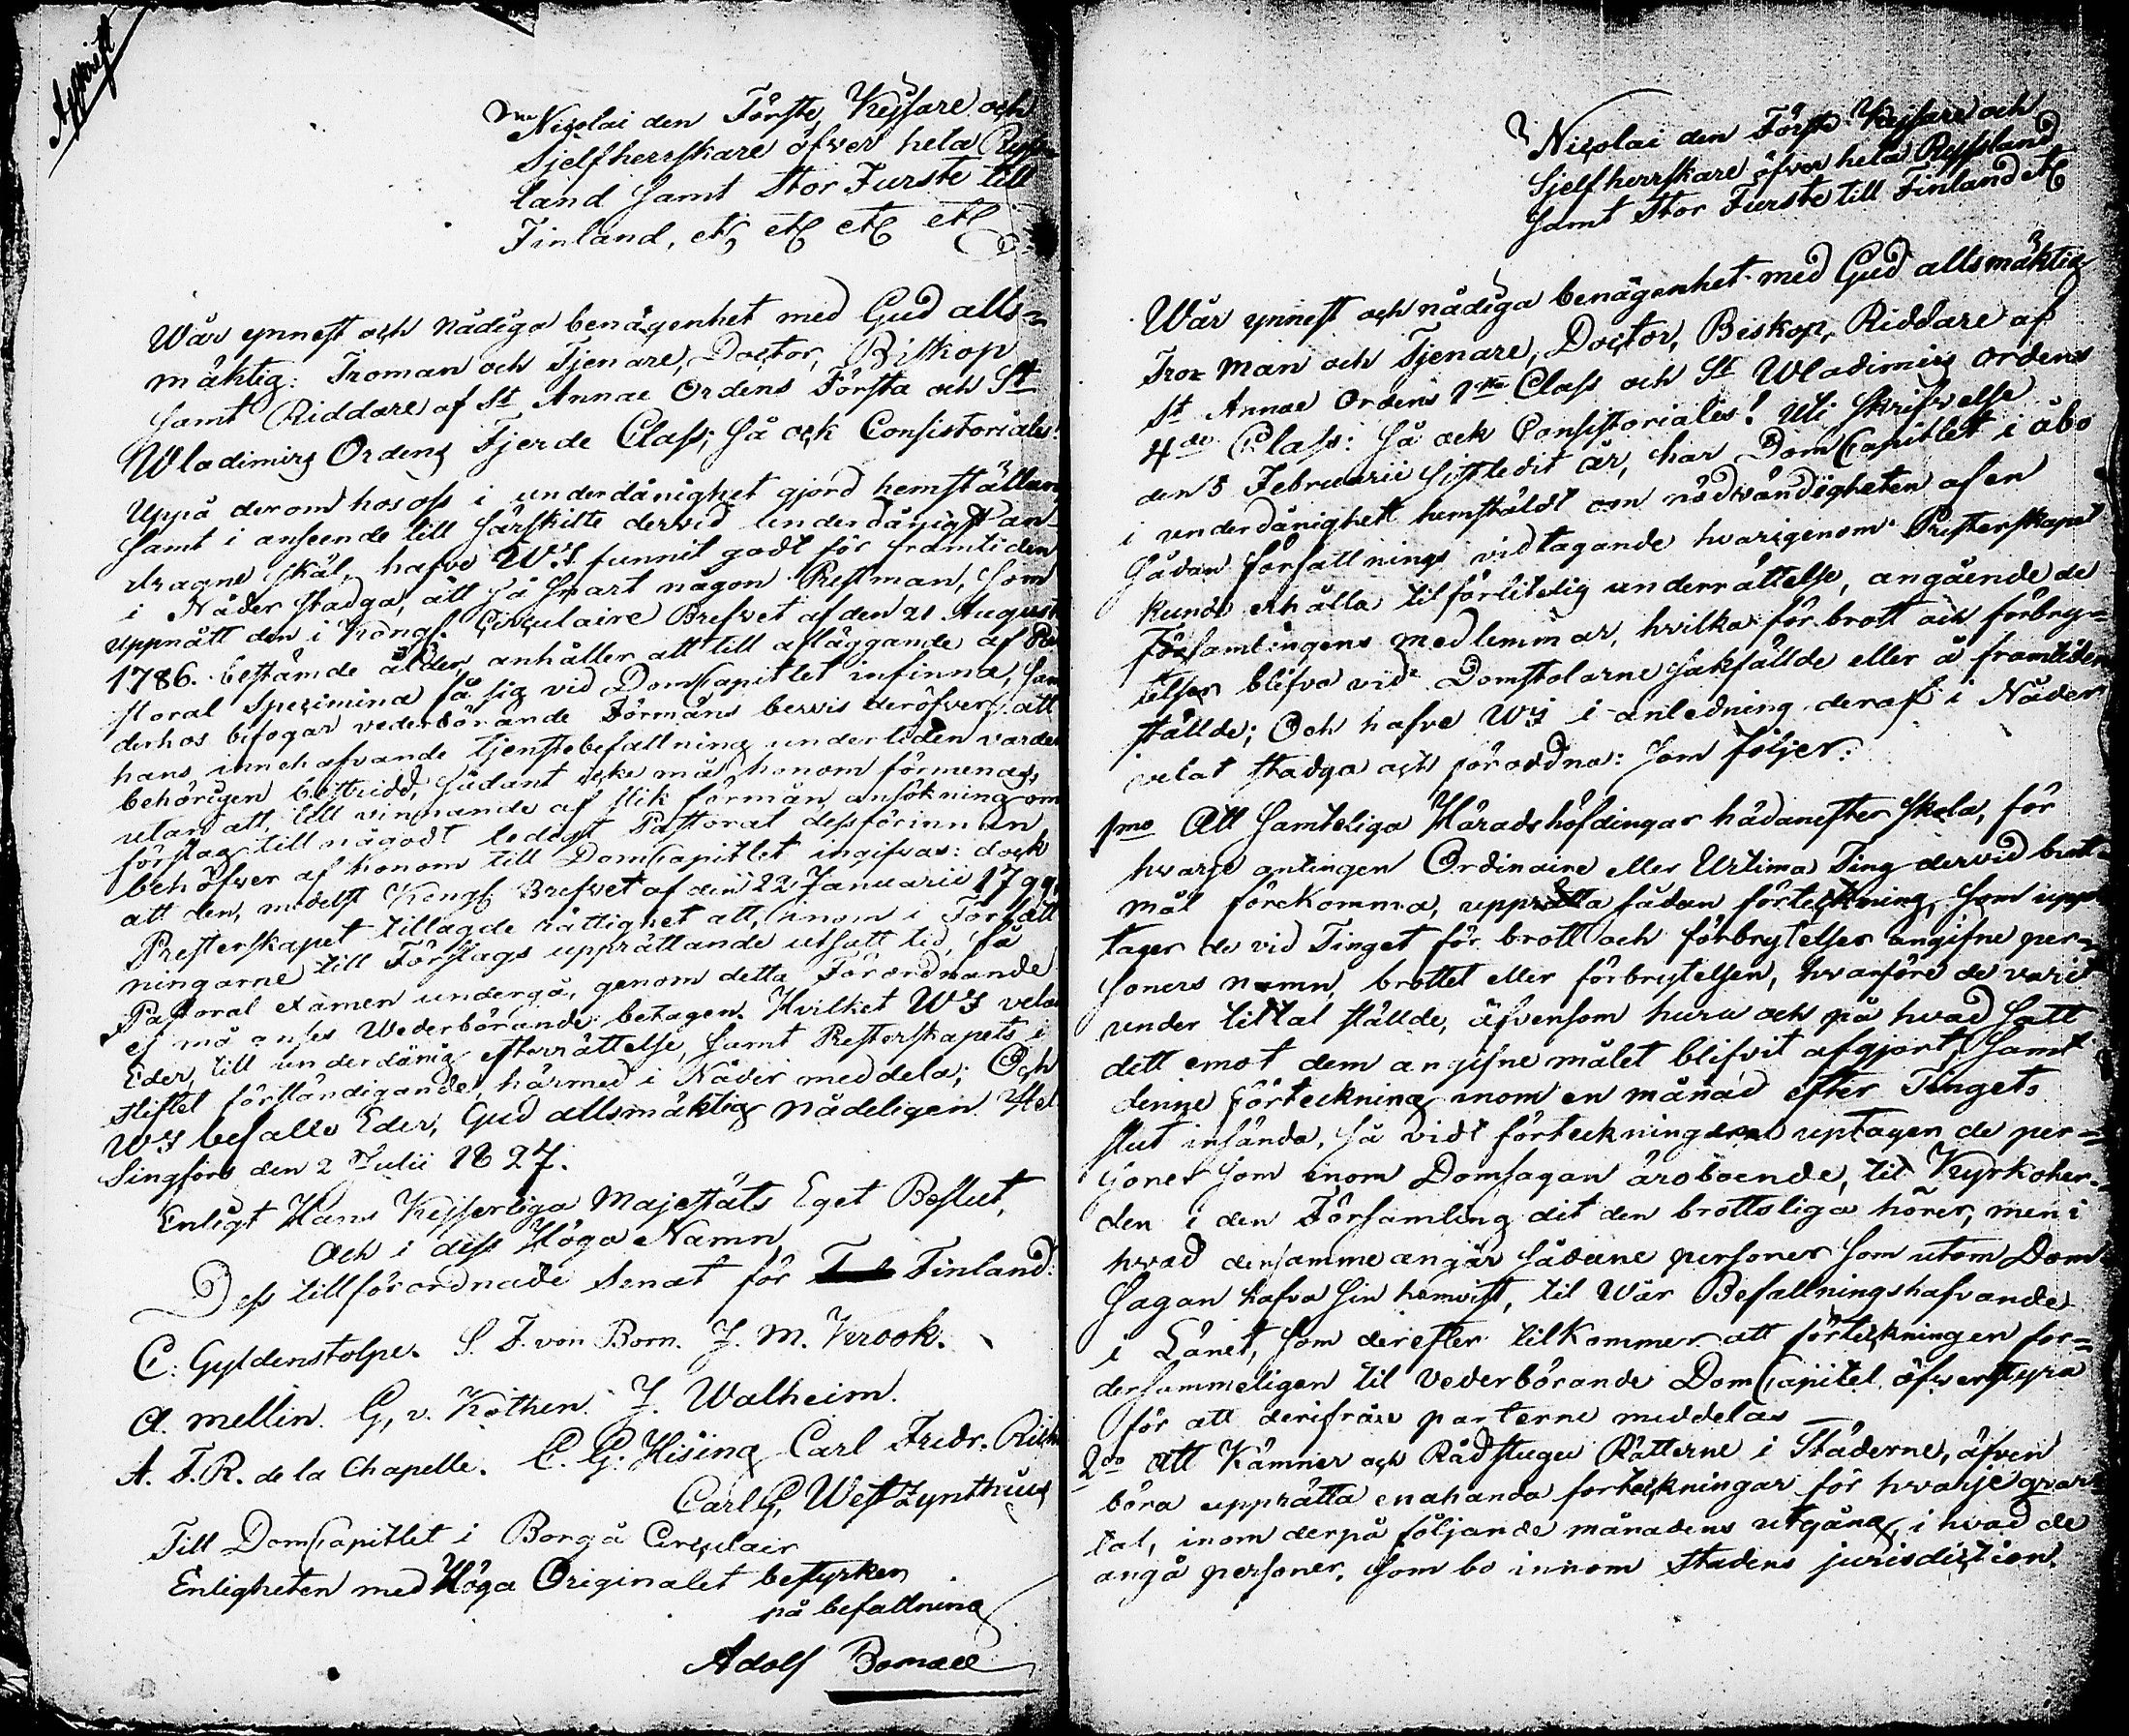 Afskrift
Nicolai den Förste, Kejsare och
Sjelfherrskare öfver hela Ryss
land Samt Stor Furste till
Finland, etc etc etc etc
Wår ynnest och nådiga benägenhet med Gud alls=
mäktig: Troman och Tjenare, Doctor, Biskop
Samt Riddare af St Annae Ordens Första och St
Wladimirs Ordens Fjerde Class; Så ock Consistoriales!
Uppå derom hos oss i underdånighet gjord hemställan
Samt i anseende till Särskilte dervid underdånigst an-
dragne skäl, hafve WI funnit godt för framtiden
i Nåder stadga, att så snart någon Prestman, som
uppnått den i Kongl. Circulaire Brefvet af den 21 August
1786. bestämde ålder, anhåller att till afläggande af Pa
storal Specimina få sig vid DomCapitlet infinna, Sam
derhos bifogar vederbörande Förmäns bevis deröfver, att
hans innehafvande tjenstebefattning under tiden varder
behörigen bestridd, sådant icke må honom förmenas,
utan att, till vinnande af slik förmån ansökning om
förslag till någodt ledigt Pastorat dessförinnan
behöfver af honom till DomCapitlet ingifvas: dock
att den, medelst Kongl Brefvet af den 22 Januarii 1799
Presterskapet tillagde rättighet att, innom i Författ
ningarne till Förslags upprättande utsatt tid, få
Pastoral examen undergå, genom detta Förordnande
ej må anses Wederbörande betagen. Hvilket WI velat
Eder, till underdånig efterrättelse, Samt Presterskapets i
Stiftet förständigande, härmed i Nåder meddela; Och
WI befalle Eder, Gud allsmäktig nådeligen. Hel
singfors den 2 Julii 1827.
Enligt Hans Kejserliga Majestäts Eget Beslut,
och i dess Höga Namn
Dess tillförordnade Senat för Finland:
C: Gyldenstolpe. S. F. von Born. J. M. Krook.
A. Mellin. G, v. Kothen. J. Walheim.
A. F. R. de la Chapelle. C. G. Hising Carl Fredr. Rich
Carl G, Westzynthius
Till DomCapitlet i Borgå Circulair
Enligheten med Höga Originalet bestyrken
på befallning
Adolf
Nicolai den Förste Kejsare och
Sjelfherrskare öfver hela Ryssland
Samt Stor Furste till Finland etc
Wår ynnest och nådiga benägenhet med Gud allsmäktig
Tro= Man och Tjenare, Doctor, Biskop, Riddare af
St Annae Ordens 1sta Class och St Wladimirs ordens
4de Class: Så ock Consistoriales! Uti Skrifvelse
den 5 Februarii sistledit år, har DomCapitlet i åbo
i underdånighett hemstäldt om nödvändigheten af en
sådan författnings vidtagande hvarigenom Presterskapet
kunde erhålla tilförlitelig underrättelse, angående de
Församlingens medlemmar, hvilka för brott och förbry=
telser blifva vid Domstolarne sakfällde eller å framtiden
ställde; Och hafve WI i anledning deraf i Nåder
velat stadga och förordna: som följer:
1mo Att Samteliga Häradshöfdingar hädanefter skola, för
hvarje antingen Ordinaire eller Urtima Ting dervid brot=
mål förekomma, upprätta sådan förteckning, som upp
tager de vid Tinget för brott och förbrytelser angifne per=
soners namn, brottet eller förbrytelsen, hvarföre de varit
under tilltal ställde, äfvensom huru och på hvad sätt
dett emot dem angifne målet blifvit afgjort, Samt
denne förteckning inom en månad efter Tingets
slut insända, så vidt förteckningarne uptager de per=
soner som inom Domsagan äro boende, til Kyrkoher=
den i den Församling dit den brottsliga hörer, men i
hvad densamme angår sådane personer som utom Dom
sagan hafva sin hemvist, til Wår Befallningshafvande
i Länet, som derefter tilkommer att förteckningen for=
dersammeligen til vederbörande DomCapitel öfverstyra
för att derifrån parterne meddelas
2do Att Kämner och Rådstugu Rätterne i Städerne, äfven
böra upprätta enahanda forteckningar för hvarje qvar
tal, inom derpå följande månadens utgång, i hvad de
angå personer, som bo innom Stadens jurisdiction,